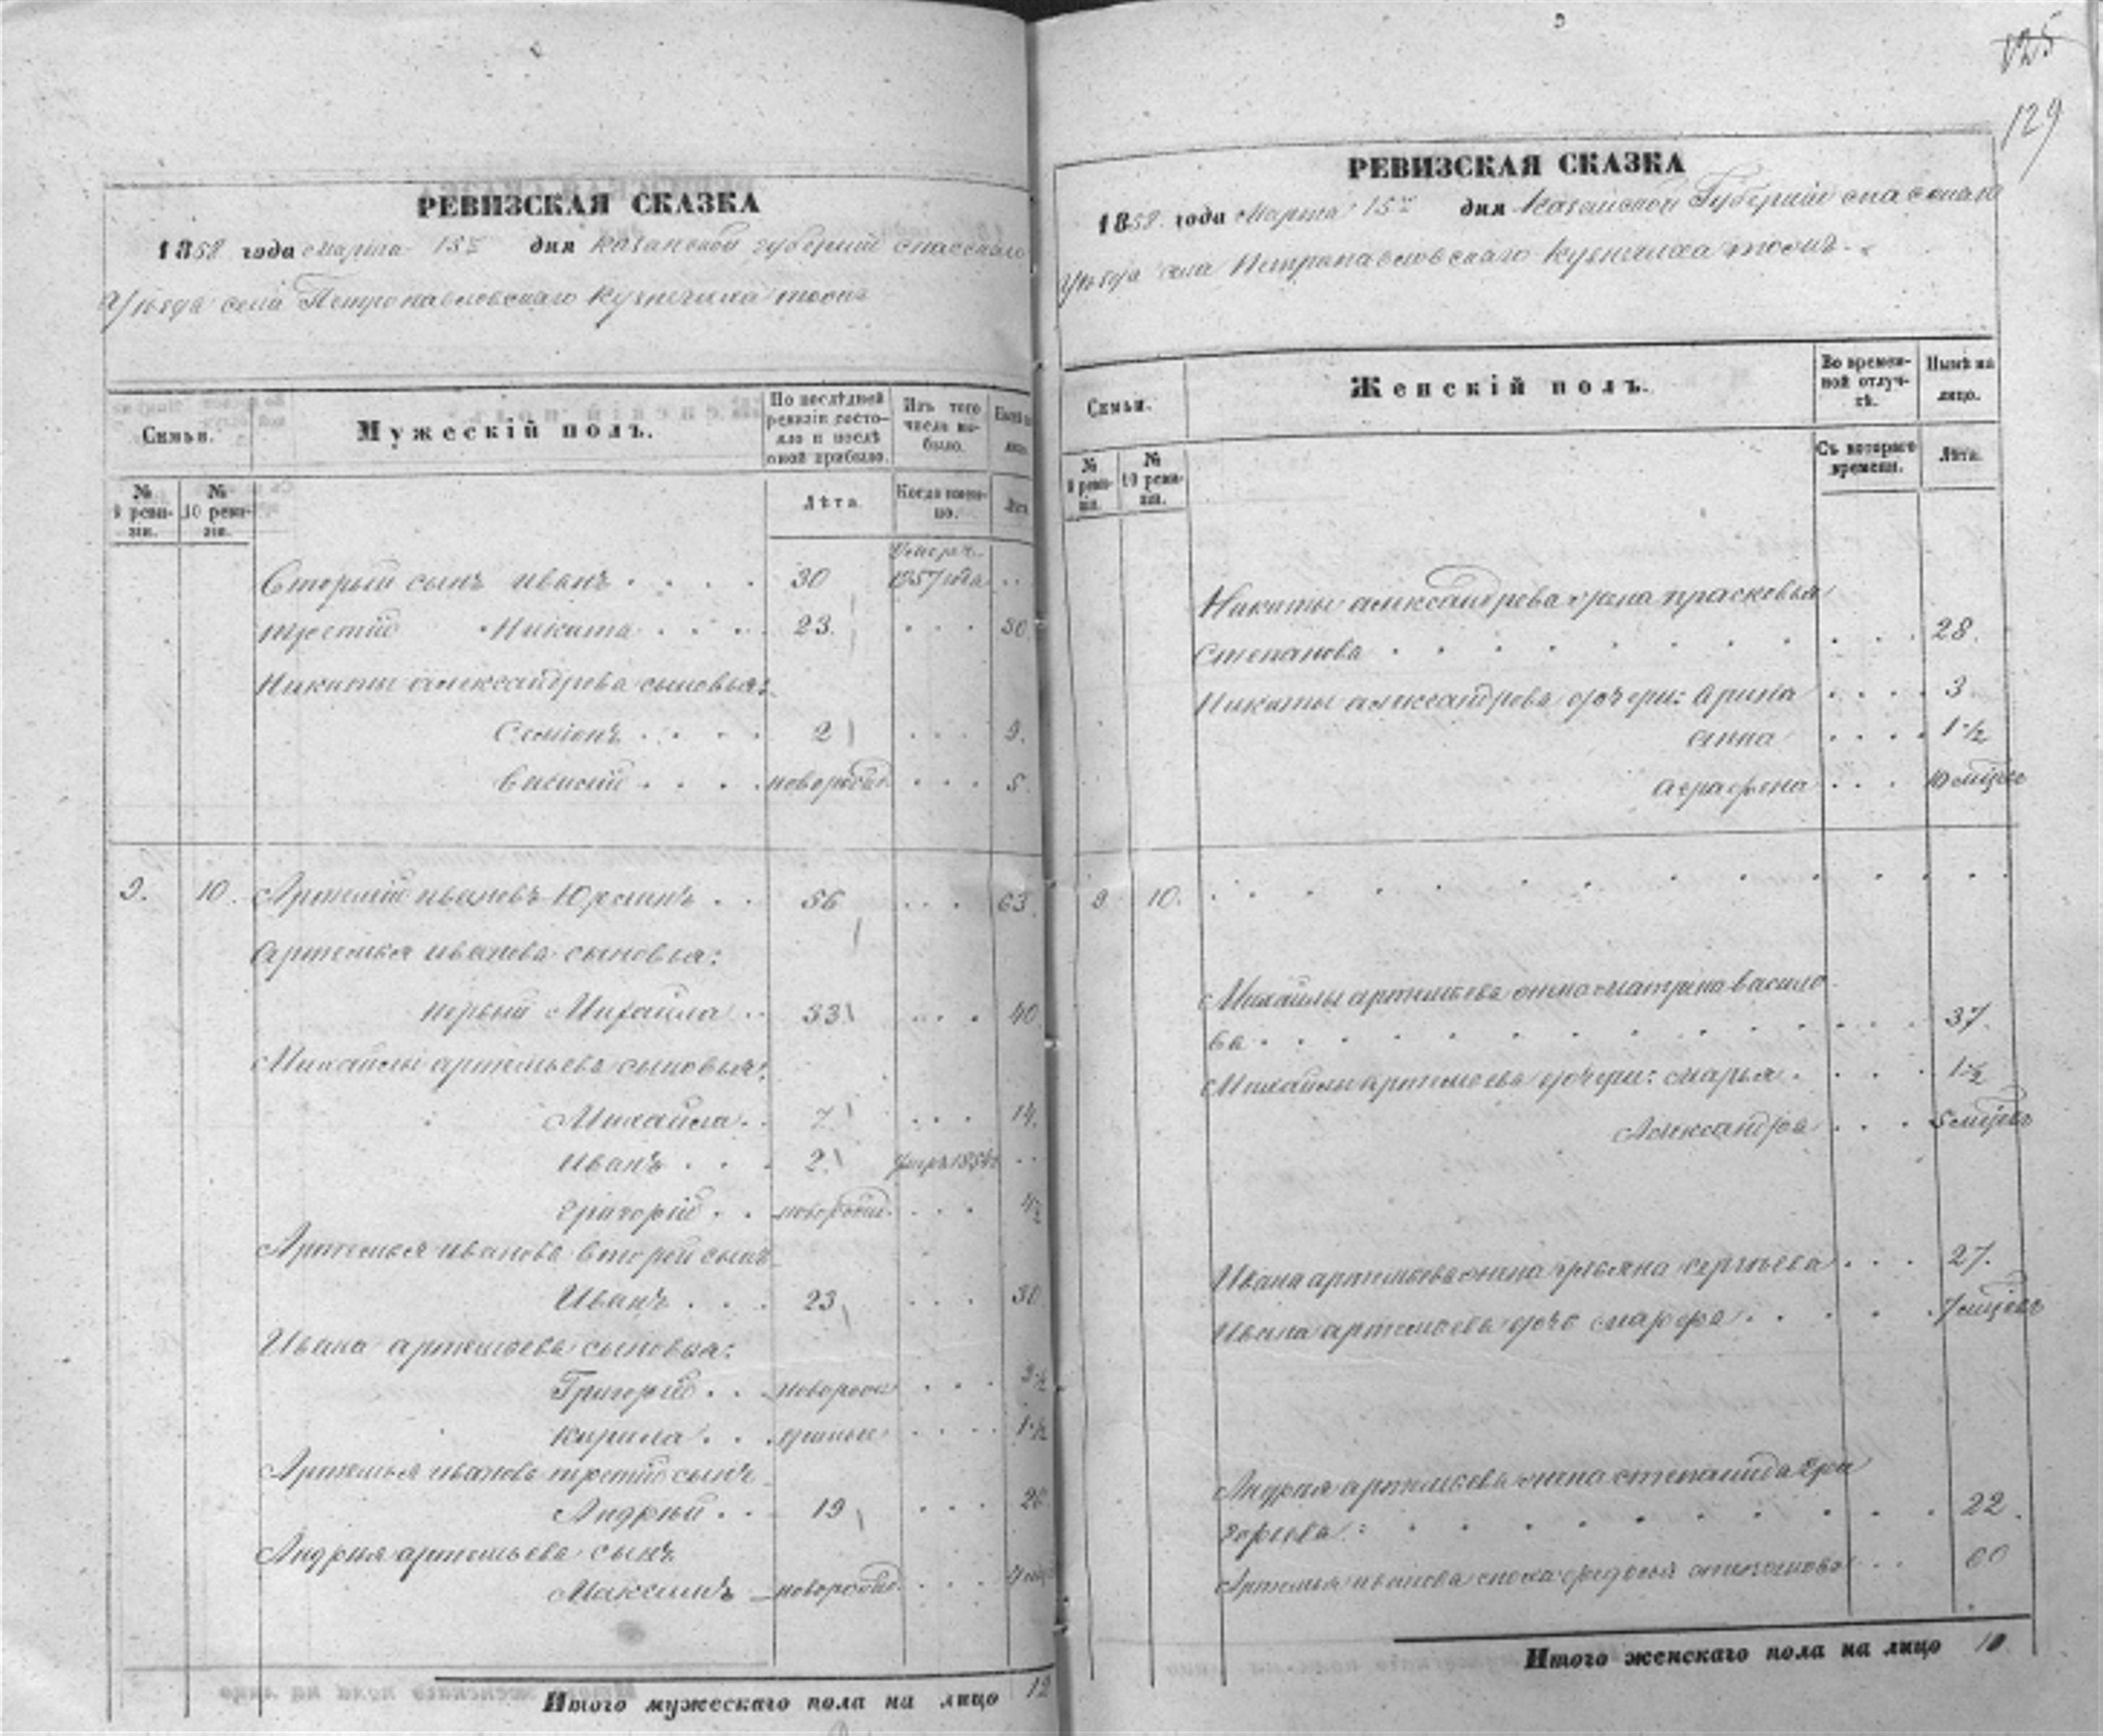 125
129
РЕВИЗСКАЯ СКАЗКА
1858 года марта 15го дня казанской губернии спасскаго
Уѣзда села Петропавловскаго Кузнечиха тожъ
Семьи.
Мужескій полъ.
По послѣдней ревизіи состояло и послѣ оной прибыло.
Изъ того числа выбыло.
Нынѣ на лицо.
№ 9 ревизіи.
№ 10 ревизіи.
Лѣта.
Когда именно.
Лѣта.
Умеръ
Вторый сынъ иванъ 30 1857 года
третій Никита 23. 30
Никиты александрова сыновья:
Семіонъ 2 9.
Василій новорожд. 5.
9. 10. Артемій ивановъ 56 63.
Артемья иванова сыновья:
первый Михайла 33 40
Михайлы артемьева сыновья:
Михайла 7 14.
Иванъ 2
Григорій новорожд. 4½
Артемья иванова второй сынъ
Иванъ 23 30
Ивана артемьева сыновья:
Григорій новорож 3½
Кирила 1½
Артемья иванова третій сынъ
Андрей 19 26
Андрея артемьева сынъ
Максимъ новорожд.
Итого мужескаго пола на лицо 12
РЕВИЗСКАЯ СКАЗКА
1858. года Марта 15го дня Казанской Губерніи спасскаго
Уѣзда села Петропавловскаго Кузнечиха тожъ.
Семьи.
Женскій полъ.
Во временной отлучкѣ.
Нынѣ на лицо.
№ 9 ревизіи.
№ 10 ревизіи.
Съ котораго времени.
Лѣта.
Никиты александрова жена прасковья
Степанова 28.
Никиты александрова дочери: Арина 3
Анна 1½
Аграфена 10 мцовъ
9 10.
Михайлы артемьева жена матрена василь
ва 37.
Михайлы артемьева дочери: марья 1½
Александра 5 мцовъ
Ивана артемьева жена сергѣева 27.
Ивана артемьева дочь марфа 7 мцовъ
Андрея артемьева жена степанида Гри
горьева 22.
Артемья иванова 60
Итого женскаго пола на лицо 10.